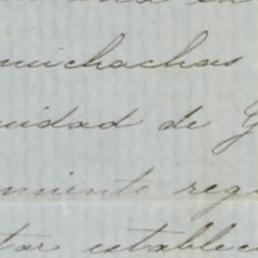 muchachas
uidad de G
miento regu
tar establec